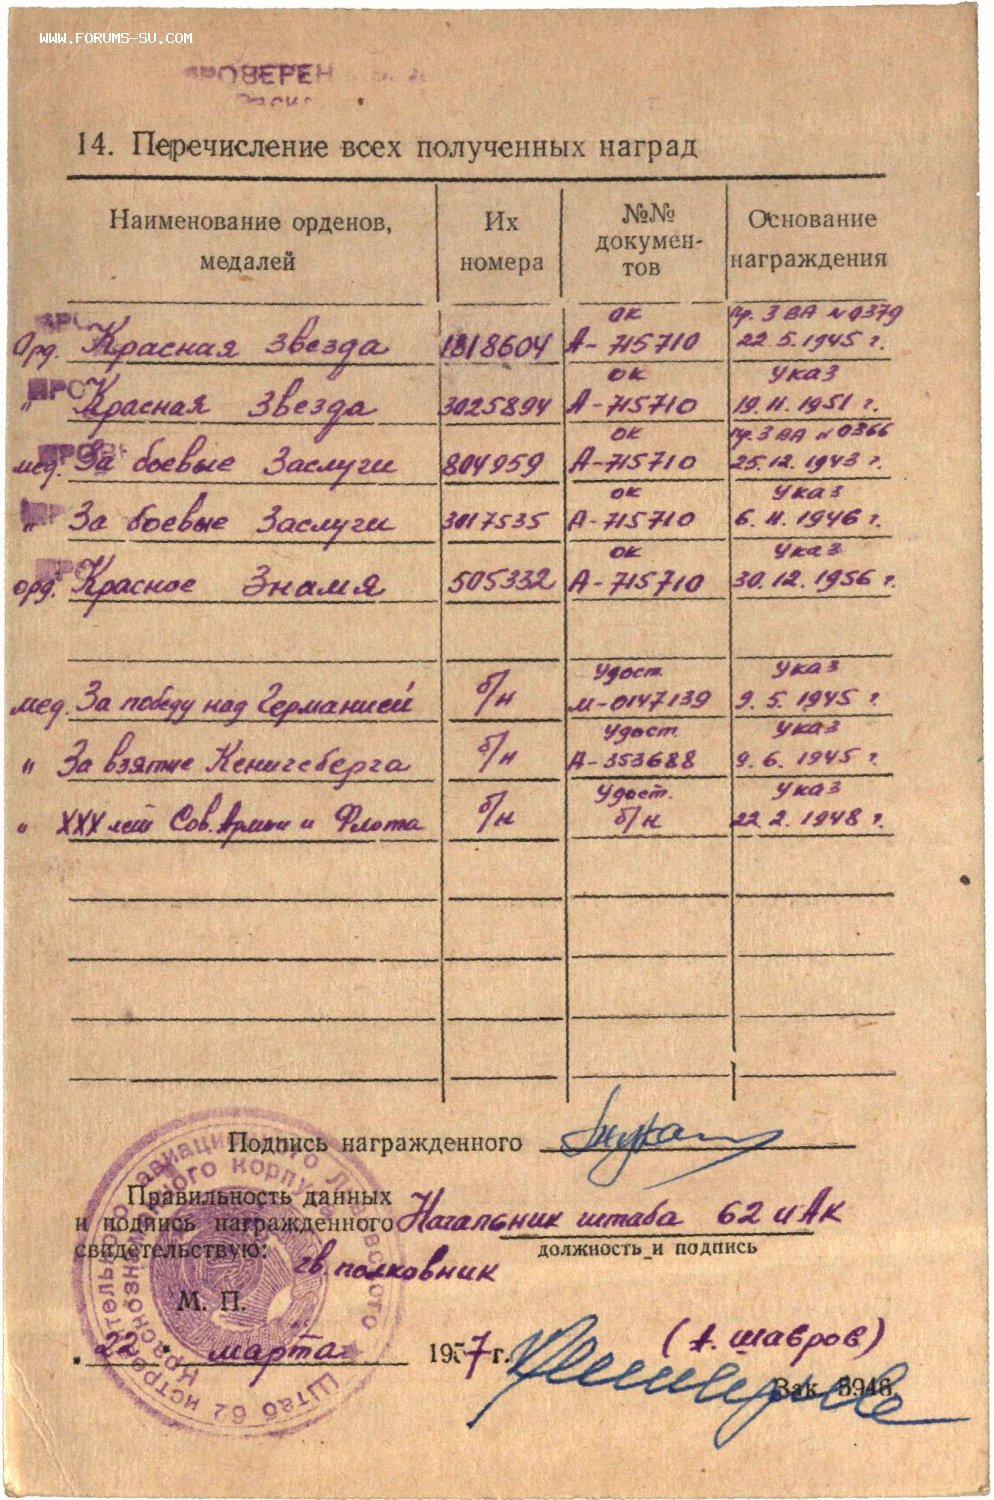 WWW.FORUMS-SU.COM
ПРОВЕРЕН
14. Перечисление всех полученных наград
Наименование орденов, медалей
Их номера
№№ докумен-тов
Основание награждения
ок пр. 3 ВА №0379
Орд. Красная Звезда 1818604 А-715710 22.5.1945 г.
ок Указ
" Красная Звезда 3025894 А-715710 19.11.1951 г.
ок пр. 3 ВА №0366
мед. За боевые Заслуги 804959 А-715710 25.12.1943 г.
ок Указ
" За боевые Заслуги 3017535 А-715710 6.11.1946 г.
ок Указ
орд. Красное Знамя 505332 А-715710 30.12.1956 г.
Удост. Указ
мед. За победу над Германией б/н М-0147139 9.5.1945 г.
Удост. Указ
" За взятие Кенигсберга б/н А-353688 9.6.1945 г.
Удост. Указ
" XXX лет Сов. Армии и Флота б/н б/н 22.2.1948 г.
Подпись награжденного
Правильность данных
и подпись награжденного Начальник штаба 62 иАК
свидетельствую: должность и подпись
гв. полковник
М. П.
22 марта 1957 г. (А. Шавров)
Зак. 5948.
Штаб 62 истребительного авиационного Краснознаменного корпуса